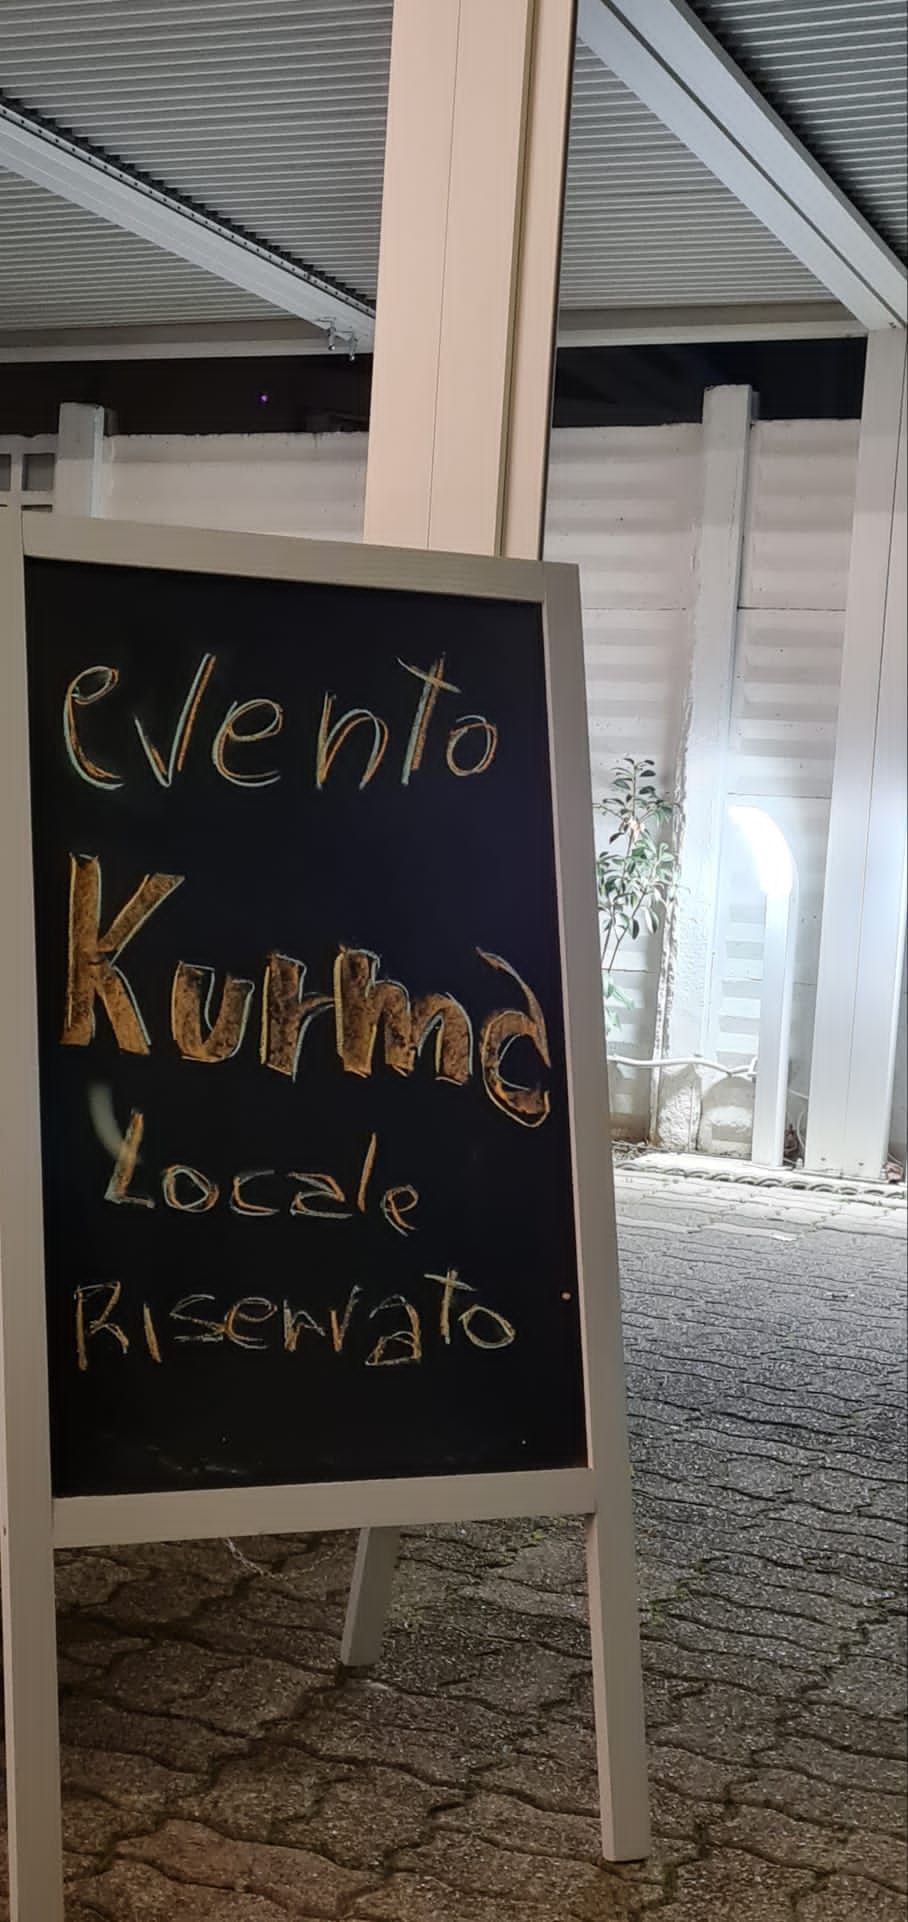 evento
Kurma
Locale
Riservato